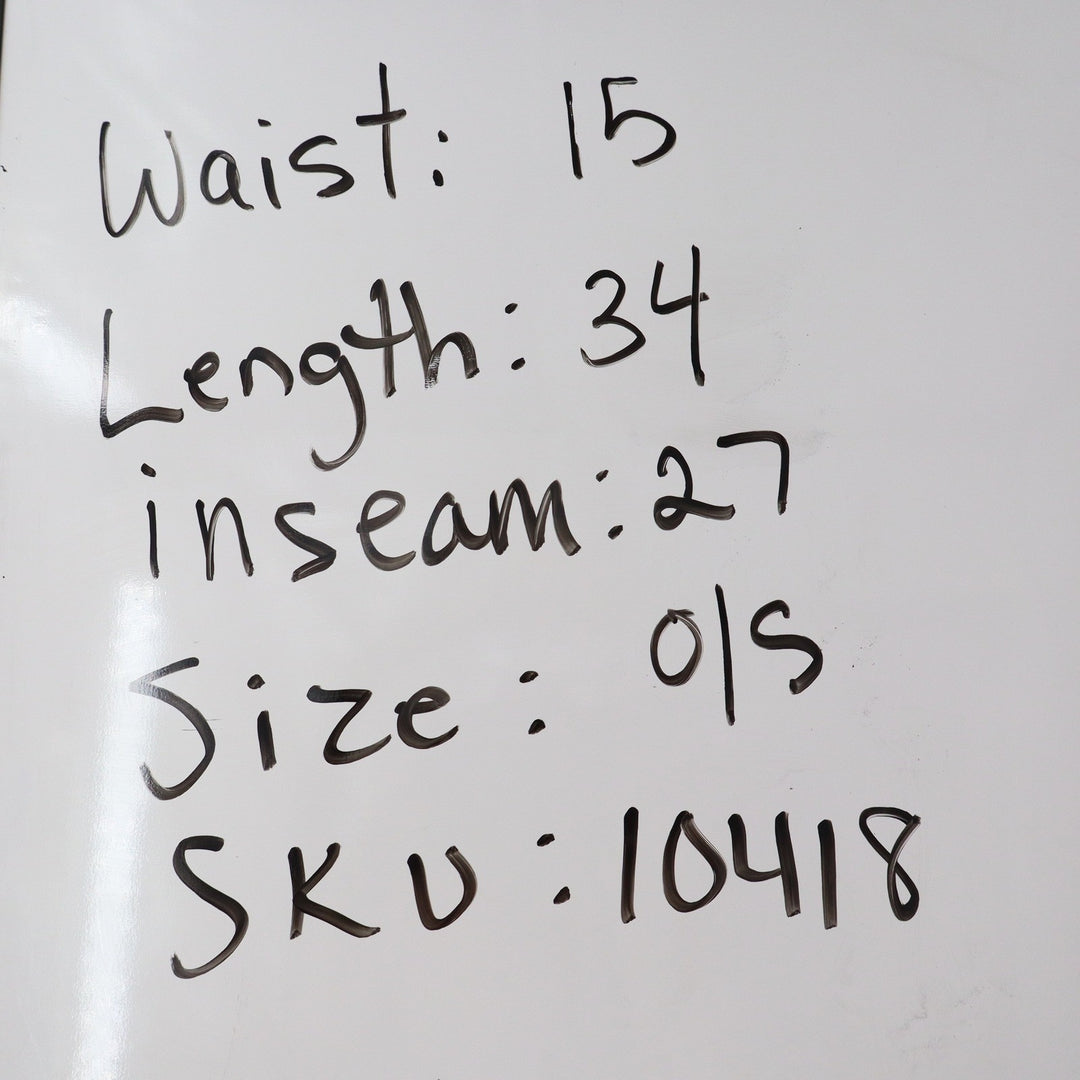 Waist: 15
Length: 34
inseam: 27
Size: O/S
SKU: 10418